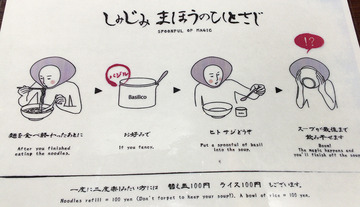 しみじみ まほうのひとさじ
SPOONFUL OF MAGIC
!?
バジル
Basilico
麺を食べ終わったあとに
After you finished
eating the noodles.
お好みで
If you fancy.
ヒトサジどうぞ
Put a spoonful of basil
into the soup.
スープが最後まで
飲み干せます
Boom!
The magic happens and
you'll finish off the sou
一度に二度楽しみたい方には 替え玉100円 ライス100円 もございます。
Noodles refill = 100 yen (Don't forget to save your soup!). A bowl of rice = 100 yen.